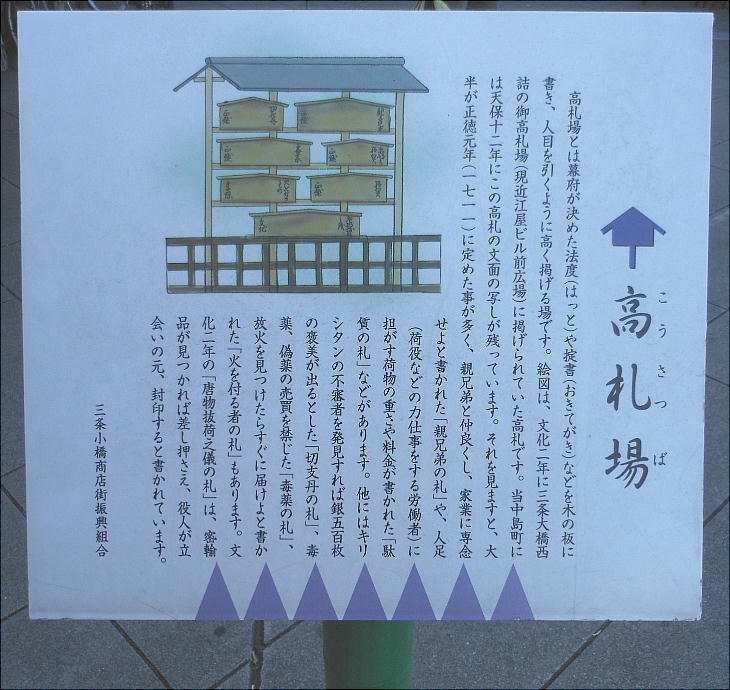 高札場
こうさつば
高札場とは幕府が決めた法度(はっと)や掟書(おきてがき)などを木の板に
書き、人目を引くように高く掲げる場です。絵図は、文化二年に三条大橋西
詰の御高札場(現近江屋ビル前広場)に掲げられていた高札です。当中島町に
は天保十二年にこの高札の文面の写しが残っています。それを見ますと、大
半が正徳元年(一七一一)に定めた事が多く、親兄弟と仲良くし、家業に専念
せよと書かれた「親兄弟の札」や、人足
(荷役などの力仕事をする労働者)に
担がす荷物の重さや料金が書かれた「駄
賃の札」などがあります。他にはキリ
シタンの不審者を発見すれば銀五百枚
の褒美が出るとした「切支丹の札」、毒
薬、偽薬の売買を禁じた「毒薬の札」、
放火を見つけたらすぐに届けよと書か
れた「火を付る者の札」もあります。文
化二年の「唐物抜荷之儀の札」は、密輸
品が見つかれば差し押さえ、役人が立
会いの元、封印すると書かれています。
三条小橋商店街振興組合